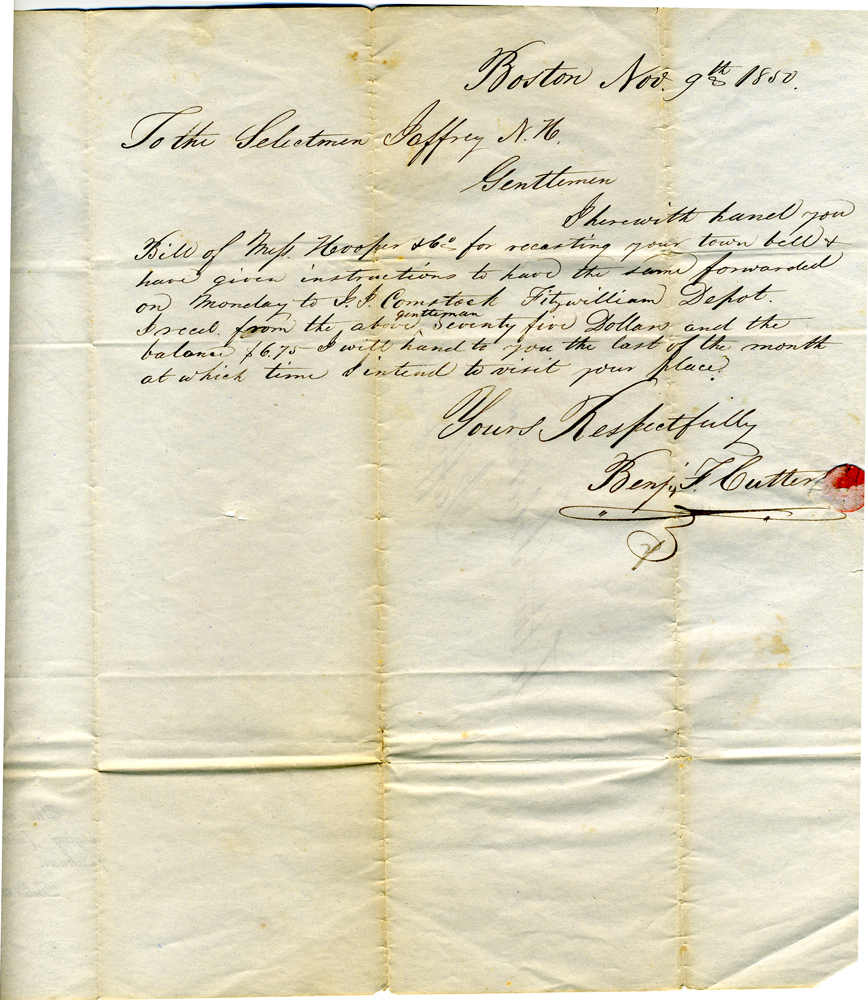 Boston Nov. 9th 1850.
To the Selectmen Jaffrey N.H.
Gentlemen
I herewith hand you
Bill of Mess. Hooper & Co for recasting your town bell &
have given instructions to have the same forwarded
on Monday to J.J. Comstock Fitzwilliam Depot.
gentleman
I recd. from the above Seventy five Dollars and the
balance $6.75 I will hand to you the last of the month
at which time I intend to visit your place.
Yours Respectfully
Benj. F. Cutter